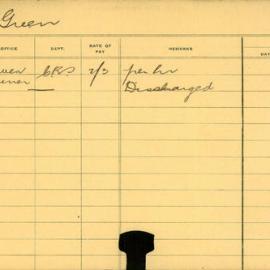 Green
OFFICE DEPT. RATE OF PAY REMARKS DA
2/3 per hr
Discharged